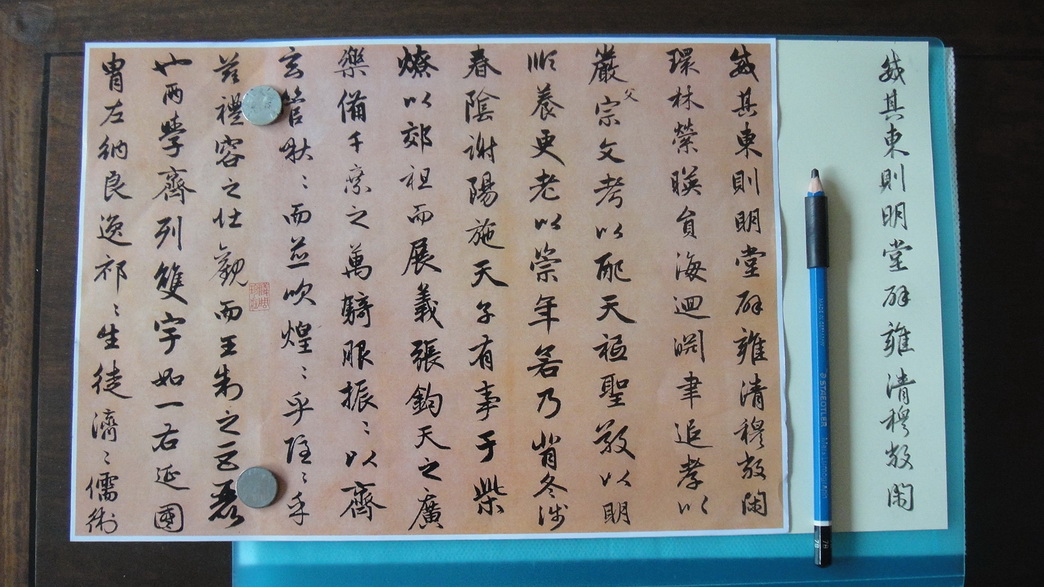 威其東則明堂辟雍清穆敞閑
威其東則明堂辟雍清穆敞閑
環林縈暎員海迴淵聿追孝以
嚴父宗文考以配天祗聖敬以明
順養更老以崇年若乃背冬涉
春陰謝陽施天子有事于柴
燎以郊祖而展義張鈞天之廣
樂備千乘之萬騎服振〻以齊
玄管啾〻而並吹煌〻乎隱〻乎
茲禮容之壯觀而王制之巨麗
也兩學齊列雙宇如一右延國
胄左納良逸祁〻生徒濟〻儒術
STAEDTLER
7B